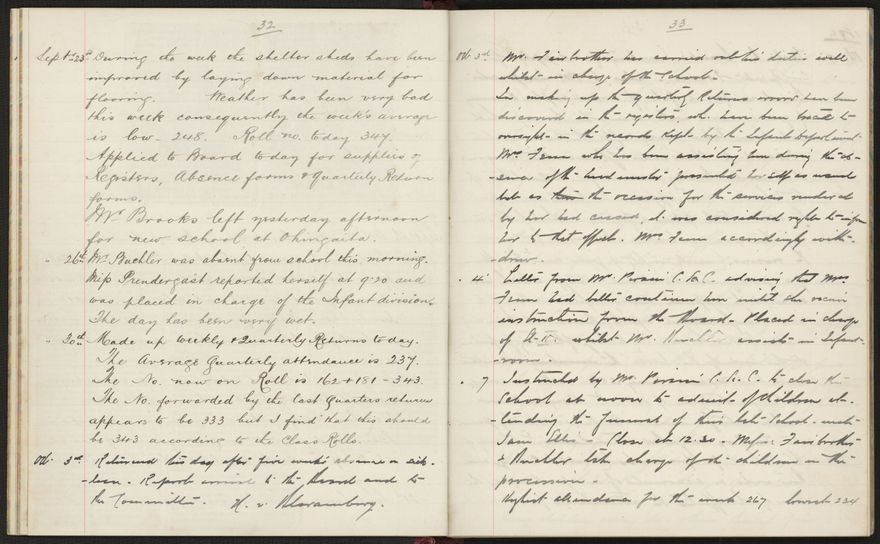 32
Sept 23rd During the week the shelter sheds have been
improved by laying down material for
flooring. Weather has been very bad
this week consequently the week's average
is low - 248. Roll no. today 347.
Applied to Board today for supplies of
Registers, Absence forms & Quarterly Return
forms.
Mr Brooks left yesterday afternoon
for new school at Ohingaita.
" 26th Mr Buehler was absent from school this morning.
Miss Prendergast reported herself at 9.20 and
was placed in charge of the Infant division.
The day has been very wet.
" 30th Made up Weekly & Quarterly Returns today.
The Average Quarterly attendance is 237.
The No. now on Roll is 162 + 181 - 343.
The No. forwarded by the last Quarters returns
appears to be 333 but I find that this should
be 343 according to the Class Rolls.
Oct. 3rd Returned this day after five weeks absence on sick-
-leave. Report to the Board and to
the Committee. H. v.
33
Oct 3rd Mr. Fairbrother has carried out his duties well
whilst in charge of the School.
In making up the quarterly Returns errors have been
discovered in the registers, wh. have been traced to
oversight in the records kept by the Infant Department.
Mrs who has been assisting here during the ab-
-sence of the head master presented herself as usual
but as the occasion for the services rendered
by her had ceased, it was considered right to inform
her to that effect. Mrs accordingly with-
-drew.
" 4 Letter from Mr. C.S.C. advising that Mrs.
had better continue here until she receive
instruction from the Board. Placed in charge
of St. II. whilst Mr. Buehler assists in Infant-
-room.
" 7 Instructed by Mr. C.S.C. to close the
School at noon to admit of Children at-
-tending the funeral of their late School-mate
Jane Ellis - Close at 12.30. Messrs Fairbrother
& Buehler take charge of the children in the
procession.
Highest attendance for the week 267 lowest 234